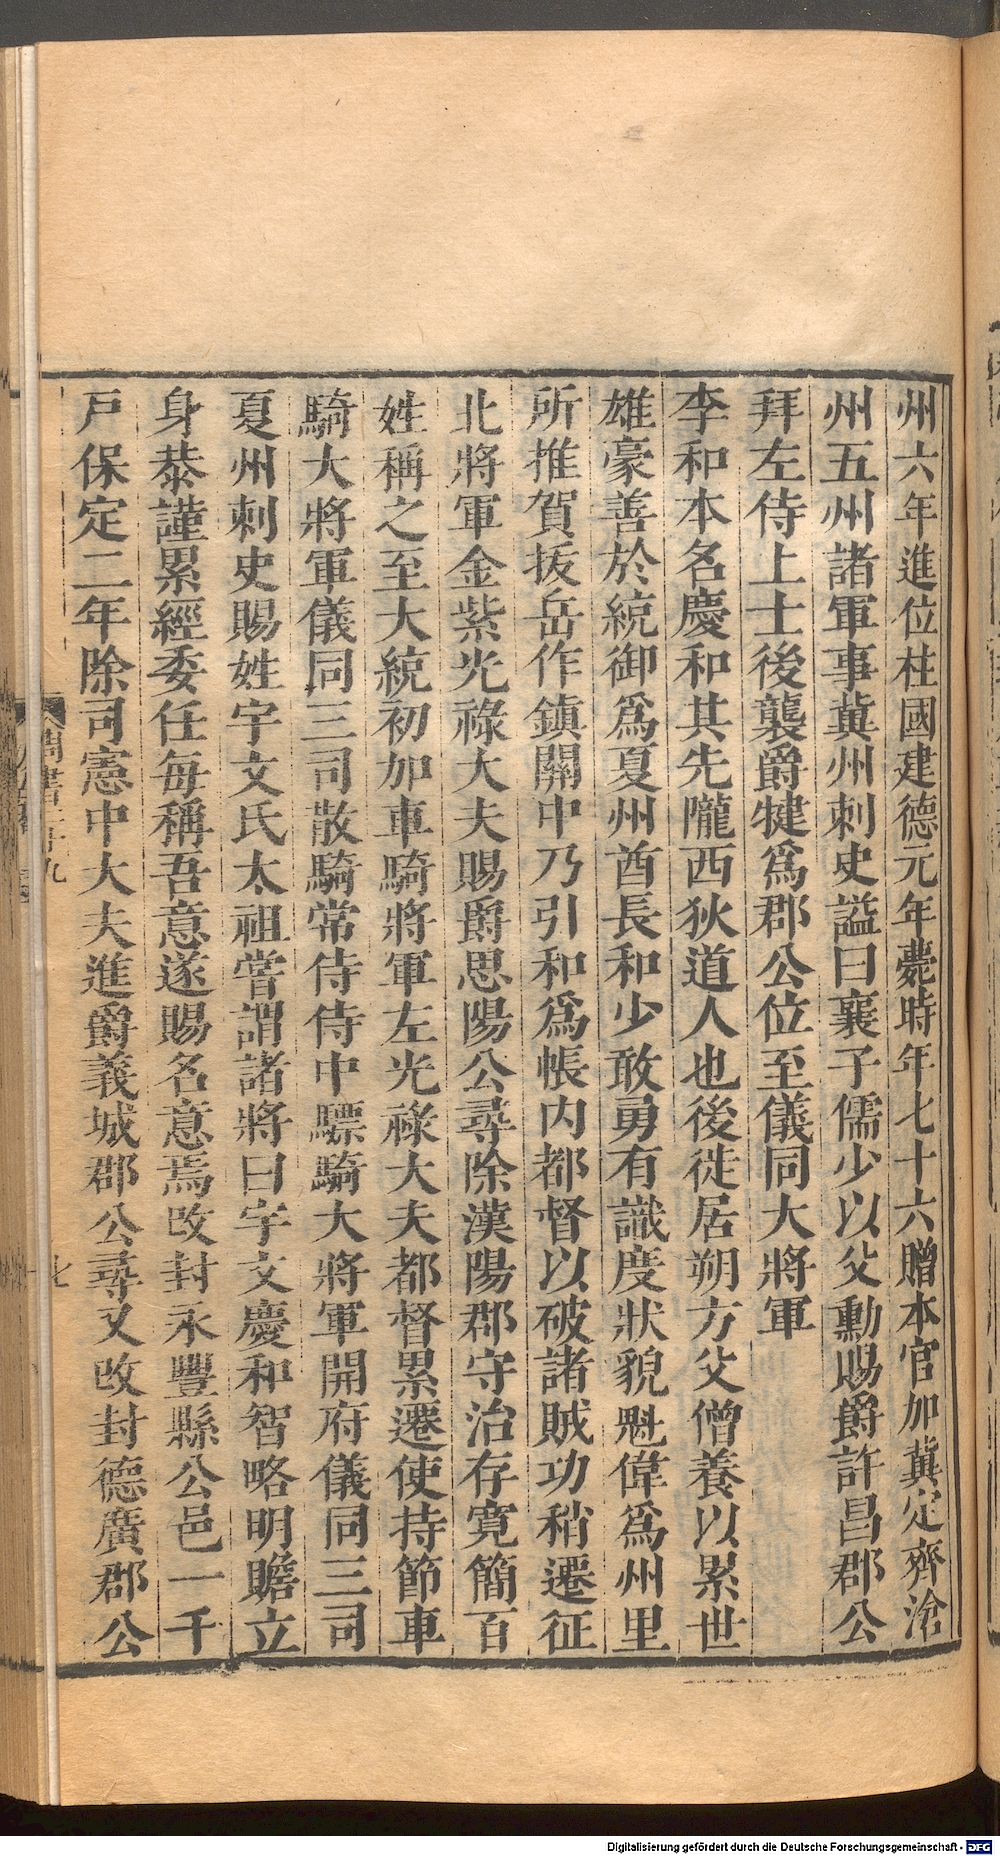 州六年進位柱國建德元年薨時年七十六贈本官加冀定齊滄
州五州諸軍事冀州刺史謚曰襄子儒少以父勳賜爵許昌郡公
拜左侍上士後襲爵犍爲郡公位至儀同大將軍
李和本名慶和其先隴西狄道人也後徙居朔方父僧養以累世
雄豪善於統御爲夏州酋長和少敢勇有識度狀貌魁偉爲州里
所推賀拔岳作鎮關中乃引和爲帳内都督以破諸賊功稍遷征
北將軍金紫光祿大夫賜爵思陽公尋除漢陽郡守治存寬簡百
姓稱之至大統初加車騎將軍左光祿大夫都督累遷使持節車
騎大將軍儀同三司散騎常侍侍中驃騎大將軍開府儀同三司
夏州刺史賜姓宇文氏太祖嘗謂諸將曰宇文慶和智略明贍立
身恭謹累經委任每稱吾意遂賜名意焉改封永豐縣公邑一千
戸保定二年除司憲中大夫進爵義城郡公尋又改封德廣郡公
周書
Digitalisierung gefördert durch die Deutsche Forschungsgemeinschaft - DFG